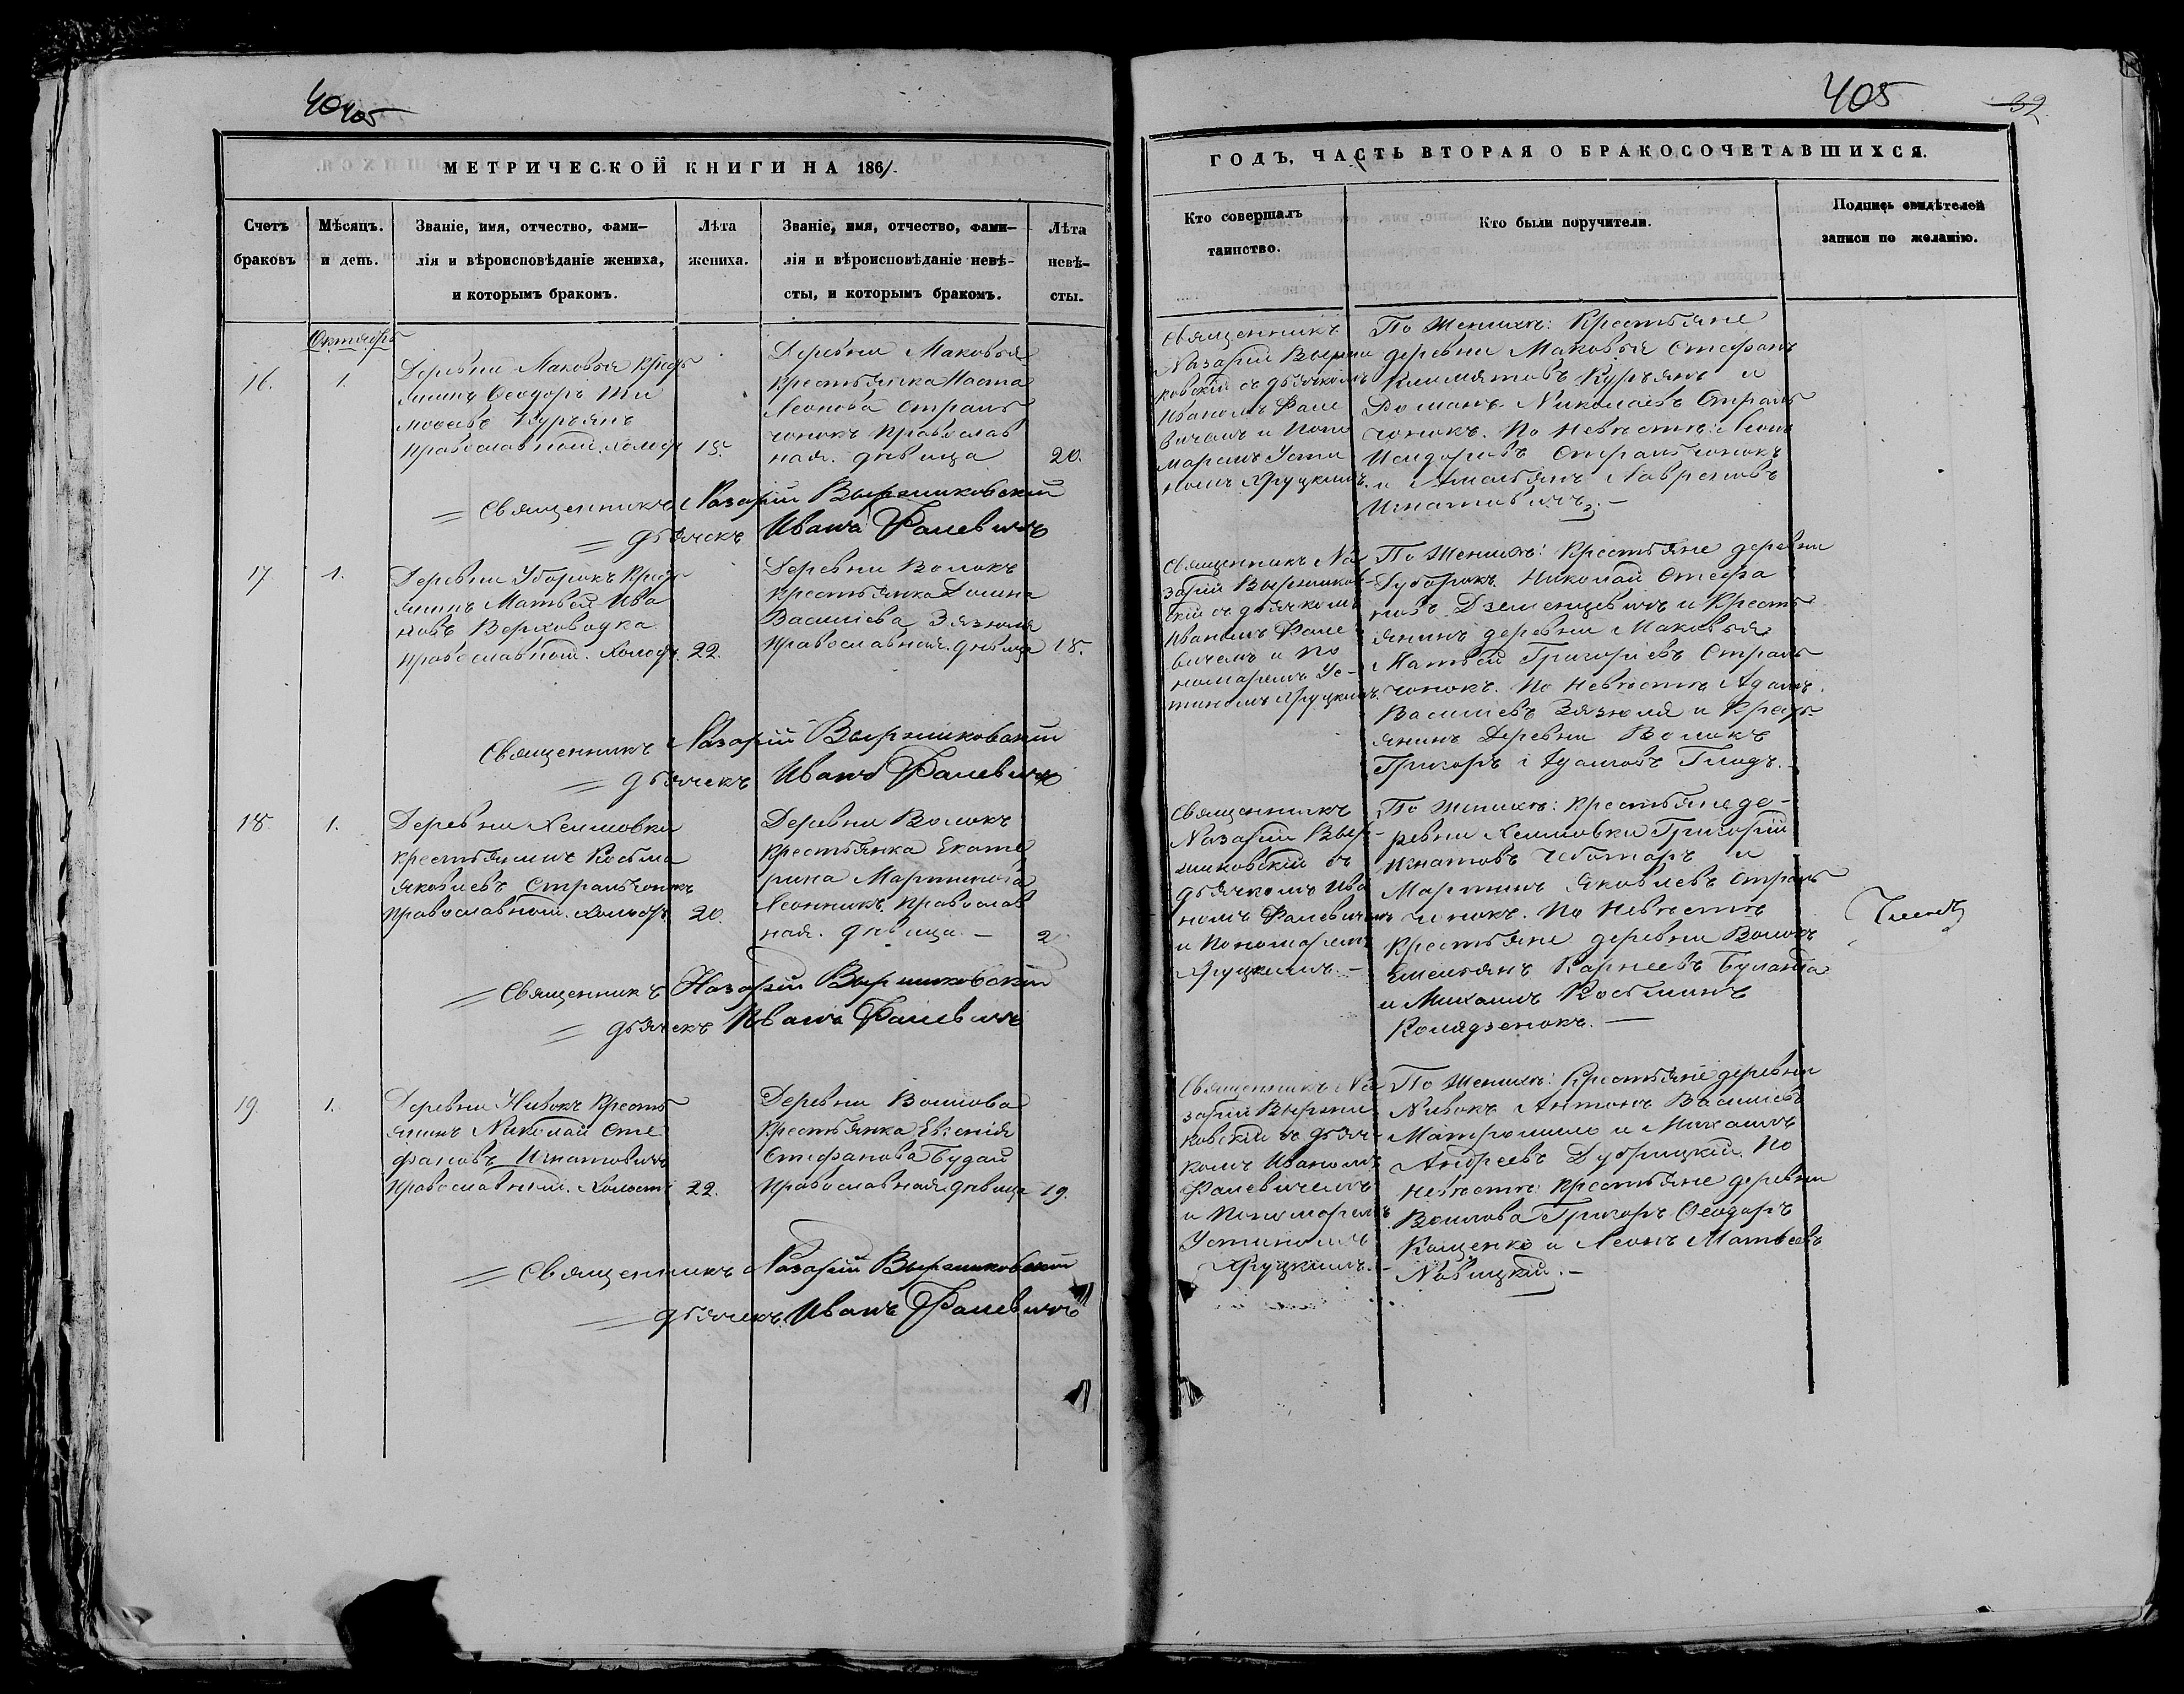 40 405
МЕТРИЧЕСКОЙ КНИГИ НА 1861
Счетъ браковъ
Мѣсяцъ. и день.
Званіе, имя, отчество, фами-
лія и вѣроисповѣданіе жениха,
и которымъ бракомъ.
Лѣта
жениха.
Званіе, имя, отчество, фами-
лія и вѣроисповѣданіе невѣ-
сты, и которымъ бракомъ.
Лѣта
невѣ-
сты.
Октябрь
16.
1.
Деревни Маковья Крест
янинъ Ѳеодоръ Ти
моѳеевъ Курьянъ
православный. Холост
19.
Деревни Маковья
крестьянка Наста
Леонова Страль
чонокъ православ
ная. дѣвица
20.
= Священникъ Назарій Вырниковскій
= дьячекъ Иванъ Фалевичъ
17.
1.
Деревни Уборокъ Крест
янинъ Матвей Ива
новъ Верховодка
православный. Холост.
22.
Деревни Волокъ
крестьянка Домна
Василіева Зязюля
православная. дѣвица
18.
Священникъ Назарій Вырниковскій
= дьячекъ Иванъ Фалевичъ
18.
1.
Деревни Хелмовки
крестьянинъ Косьма
Яковлевъ Стральчонокъ
православный. Холост.
20.
Деревни Волокъ
крестьянка Екате
рина Мартинова
Леонникъ православ
ная. дѣвица. —
= Священникъ Назарій Вырниковскій
= дьячекъ Иванъ Фалевичъ
19.
1.
Деревни Нивокъ Кресть
янинъ Николай Сте
фановъ Игнатовичъ
православный. Холостъ
22.
Деревни Воилова
Крестьянка Евгенія
Стефанова Будай
православная дѣвица
19.
= Священникъ Назарій Вырниковскій
= дьячекъ Иванъ Фалевичъ
405
32
ГОДЪ, ЧАСТЬ ВТОРАЯ О БРАКОСОЧЕТАВШИХСЯ.
Кто совершалъ
таинство.
Кто были поручители.
Подпись свидѣтелей
записи по желанію.
Священникъ
Назарій Вырни
ковскій съ дьячкомъ
Иваномъ Фале
вичемъ и Поно
маремъ Усти
номъ Яруцкимъ.
По Женихѣ: Крестьяне
деревни Маковья Стефанъ
Климятовъ Курьянъ и
Романъ Николаевъ Страль
чонокъ. По Невѣстѣ: Леонъ
Исидоровъ Стральчонокъ
и Амельянъ Лавреновъ
Игнатовичъ. —
Священникъ На
зарій Вырников-
скій съ дьячкомъ
Иваномъ Фале
вичемъ и По
номаремъ Ус-
тиномъ Яруцкимъ.
По Женихѣ: Крестьяне деревни
Уборокъ Николай Стефа
новъ Дземенцевичъ и Кресть
янинъ деревни Маковья
Матвей Григоріевъ Страль
чонокъ. По Невѣстѣ Адамъ
Василіевъ Зязюля и Крест
янинъ Деревни Волокъ
Григоръ Адамовъ Гладъ. —
Священникъ
Назарій Выр-
никовскій съ
дьячкомъ Ива
номъ Фалевичемъ
и Пономаремъ
Яруцкимъ. —
По Женихѣ: Крестьяне де-
ревни Хелмовки Григорій
Игнатовъ Чеботаръ и
Мартинъ Яковлевъ Страль
чонокъ. По Невѣстѣ
Крестьяне деревни Волокъ
Емельянъ Карнеевъ Буланда
и Михаилъ Косьминъ
Колядзенокъ. —
Священникъ На
зарій Вырни
ковскій съ дьяч-
комъ Иваномъ
Фалевичемъ
и Пономаремъ
Устиномъ
Яруцкимъ. —
По Женихѣ: Крестьяне деревни
Нивокъ Антонъ Василіевъ
Матрошило и Михаилъ
Андреевъ Дубрицкій. По
Невѣстѣ: Крестьяне деревни
Воилова Григоръ Ѳеодоръ
Кащенко и Леонъ Матвеевъ
Навицкій. —